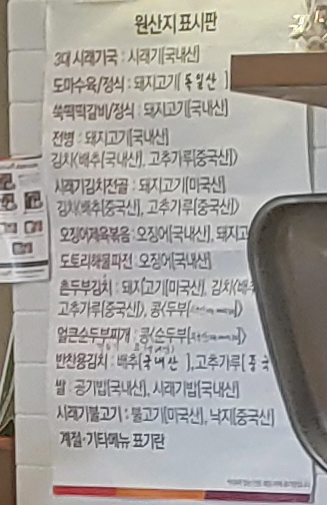 원산지 표시판
3대 시래기국 : 시래기[국내산]
도마수육/정식 : 돼지고기[독일산]
쑥떡떡갈비/정식 : 돼지고기[국내산]
전병 : 돼지고기[국내산]
김치(배추[국내산], 고추가루[중국산])
시래기김치전골 : 돼지고기[미국산]
김치(배추[중국산], 고추가루[중국산])
오징어제육볶음 : 오징어[국내산], 돼지고
도토리해물파전 : 오징어[국내산]
흔두부김치 : 돼지고기[미국산], 김치(배추
고추가루[중국산]), 콩(두부
얼큰순두부찌개 : 콩(순두부
반찬용김치 : 배추[국내산], 고추가루[중국
쌀 : 공기밥[국내산], 시래기밥[국내산]
시래기불고기 : 불고기[미국산], 낙지[중국산]
계절·기타메뉴 표기란